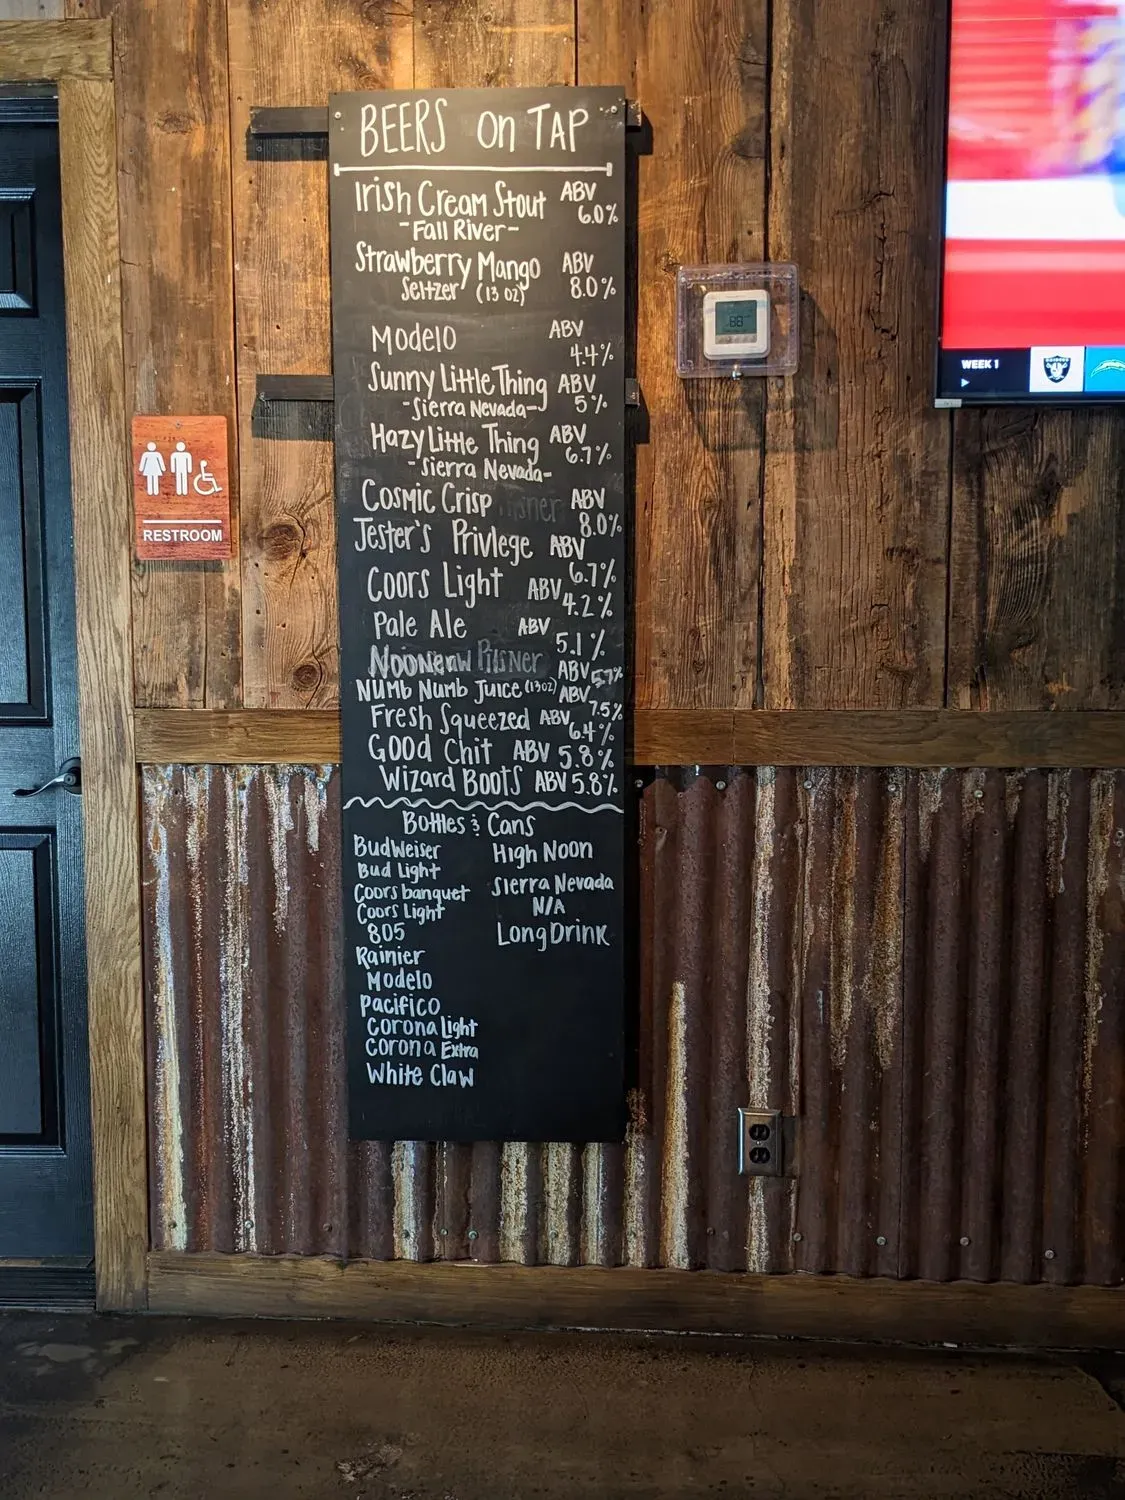 BEERS on TAP
Irish Cream Stout ABV 6.0%
-Fall River-
Strawberry Mango ABV 8.0%
Seltzer (13 oz)
Modelo ABV 4.4%
Sunny Little Thing ABV 5%
-Sierra Nevada-
Hazy Little Thing ABV 6.7%
-Sierra Nevada-
Cosmic Crisp ABV 8.0%
Jester's Privlege ABV 6.7%
Coors Light ABV 4.2%
Pale Ale ABV 5.1%
Pilsner ABV 5.7%
Numb Numb Juice (13oz) ABV 7.5%
Fresh Squeezed ABV 6.4%
Good Chit ABV 5.8%
Wizard Boots ABV 5.8%
Bottles & Cans
BudWeiser
Bud Light
Coors banquet
Coors Light
805
Rainier
Modelo
Pacifico
Corona Light
Corona Extra
White Claw
High Noon
Sierra Nevada
N/A
Long Drink
RESTROOM
88
WEEK 1